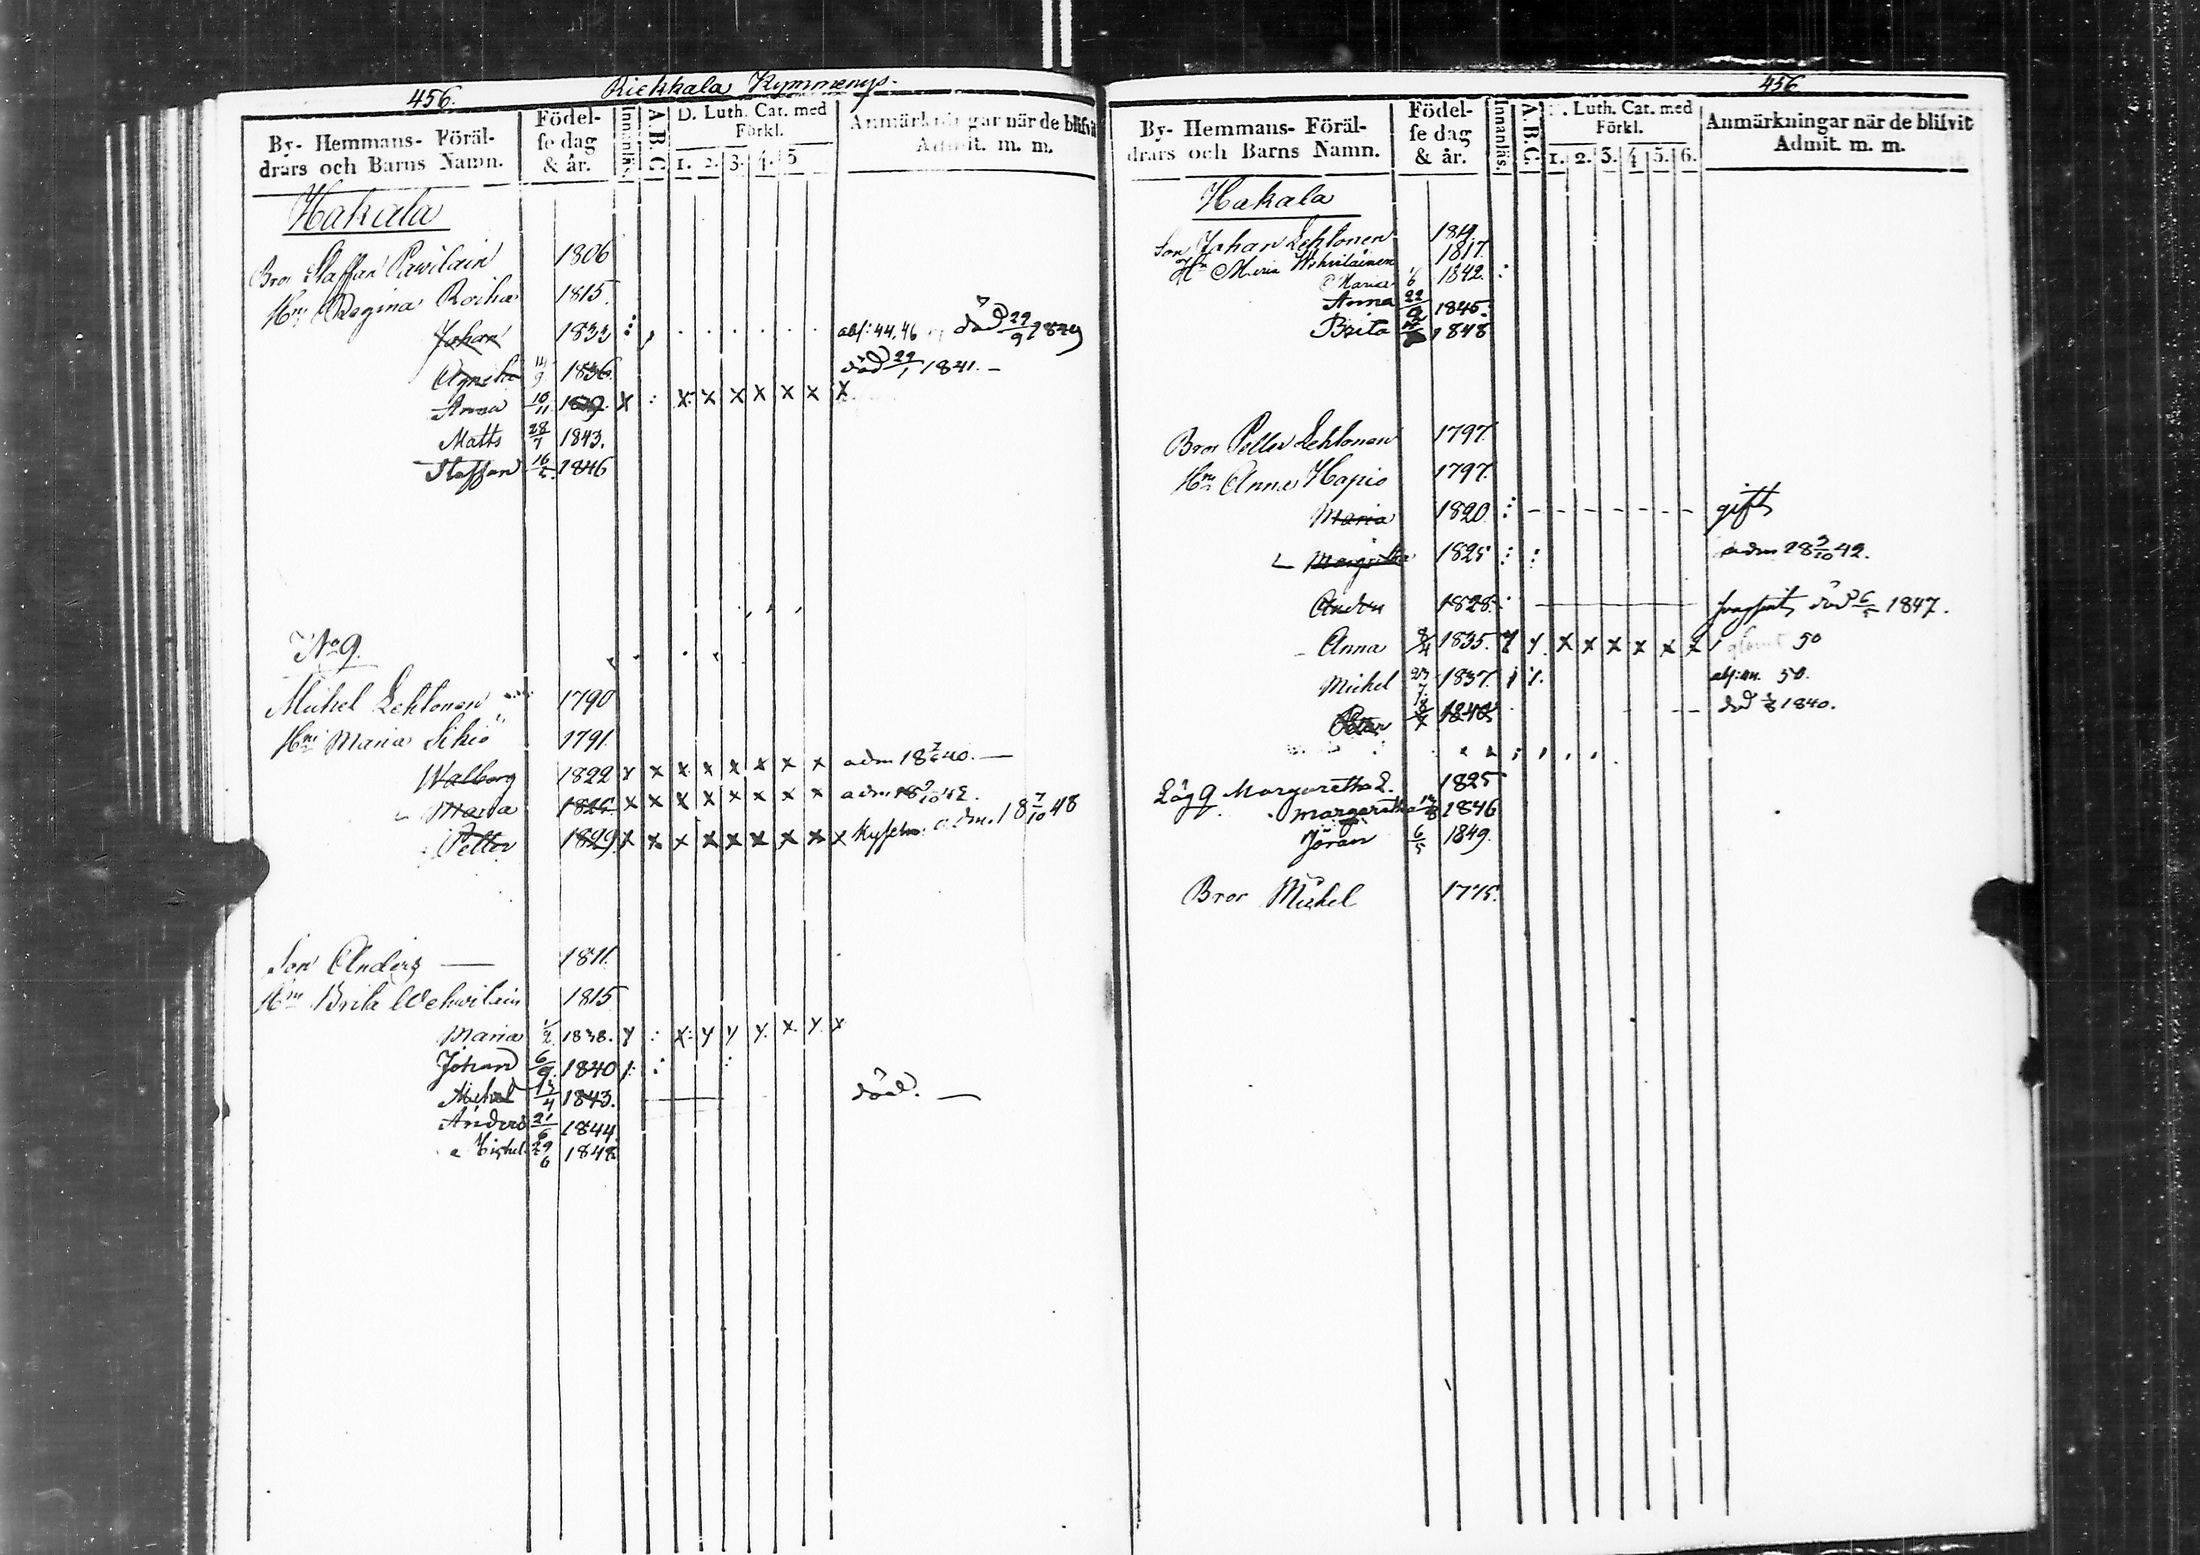 456. Riekkala Kymmenys.
By- Hemmans- Föräl-
drars och Barns Namn.
Födel-
se dag
& år.
Innanläs.
A.B.C.
D. Luth. Cat. med
Förkl.
1. 2. 3. 4. 5
Anmärkningar när de blifvit
Admit. m. m.
Hakala
Bror Staffan Pawilain 1806
Hru Regina Roiha 1815.
Johan 1833 : , . . . . . . abs: 44, 46 död 29/9 1849
Agneta 14/9 1836. död 29/1 1841. –
Anna 10/11 1839. X : X X X X X X X
Matts 28/7 1843.
Staffan 16/5 1846
No 9.
Michel Lehtonen 1790
Hru Maria Sihiö 1791.
Walborg 1822 x x x x x x x x adm 18 7/6 40. —
Maria 1825 x x x x x x x x adm 18 9/10 42.
Petter 1829 x x x x x x x x x adm. 18 7/10 48
Son Anders — 1811.
Hru Brita Wehwilain 1815
Maria 1/2 1838. y : x y y y x y x
Johan 6/9 1840
Michel 13/4 1843. död. —
Anders 21/6 1844
Michel 29/6 1848
456
By- Hemmans- Föräl-
drars och Barns Namn.
Födel-
se dag
& år.
Innanläs.
A.B.C.
Luth. Cat. med
Förkl.
1. 2. 3. 4 5. 6.
Anmärkningar när de blifvit
Admit. m. m.
Hakala
Son Johan Lehtonen 1814.
Hu Maria Wehviläinen 1817.
Maria 1842. :
Anna 22/9 1845.
Brita 1848
Bror Petter Lehtonen 1797.
Hru Anna Hapio 1797.
Maria 1820 : – – – – – – – gift
Margretha 1825 : : adm 28 9/10 42.
Anders 1828. : — död 6/5 1847.
Anna 8/4 1835. y y x x x x x x 50
Michel 23/7 1837. abs: 50.
Petter 1840 död 1840.
Läg 9 Margaretha L. 1825
Margaretha 1846
Jöran 6/5 1849.
Bror Michel 1775.